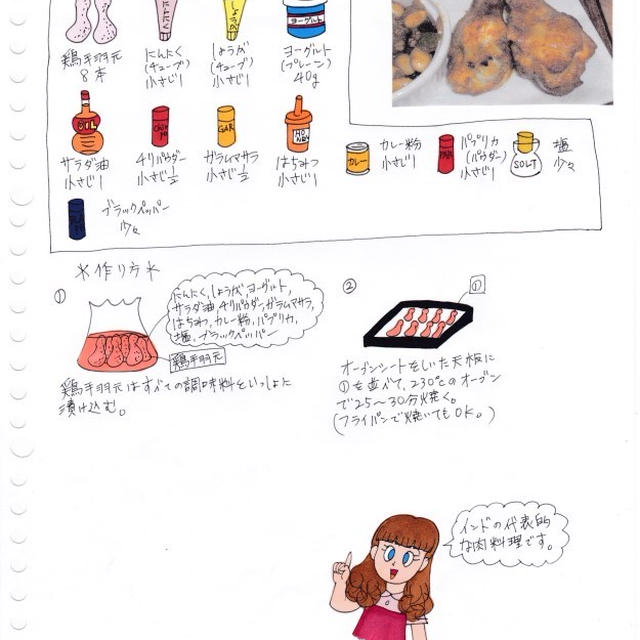 にんにく
しょうが
ヨーグルト
鶏手羽元
8本
にんにく
(チューブ)
小さじ1
しょうが
(チューブ)
小さじ1
ヨーグルト
(プレーン)
40g
OIL
GAR
HONEY
カレー
SOLT
サラダ油
小さじ1
チリパウダー
小さじ1/2
ガラムマサラ
小さじ1/2
はちみつ
小さじ1
カレー粉
小さじ1
パプリカ
(パウダー)
小さじ1
塩
少々
ブラックペッパー
少々
*作り方*
①
にんにく,しょうが,ヨーグルト,
サラダ油,チリパウダー,ガラムマサラ,
はちみつ,カレー粉,パプリカ,
塩,ブラックペッパー
鶏手羽元
鶏手羽元はすべての調味料といっしょに
漬け込む。
②
①
オーブンシートをしいた天板に
①を並べて,230℃のオーブン
で25〜30分焼く。
(フライパンで焼いてもOK。)
インドの代表的
な肉料理です。